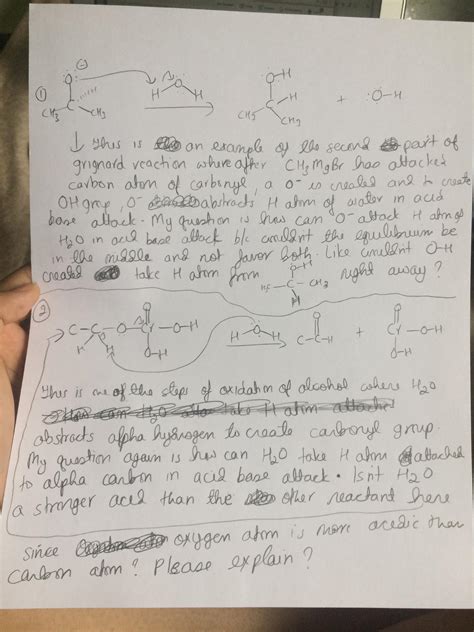 ①
↓ This is an example of the second part of
grignard reaction where after CH3MgBr has attacked
carbon atom of carbonyl, a O- is created and to create
OH group, O- abstracts H atom of water in acid
base attack. My question is how can O- attack H atom of
H2O in acid base attack b/c wouldn't the equilibrium be
in the middle and not favor both. Like wouldn't O-H
created take H atom from right away?
②
This is one of the steps of oxidation of alcohol where H2O
abstracts alpha hydrogen to create carbonyl group.
My question again is how can H2O take H atom attached
to alpha carbon in acid base attack. Isnt H2O
a stronger acid than the other reactant here
since oxygen atom is more acedic than
carbon atom? Please explain?